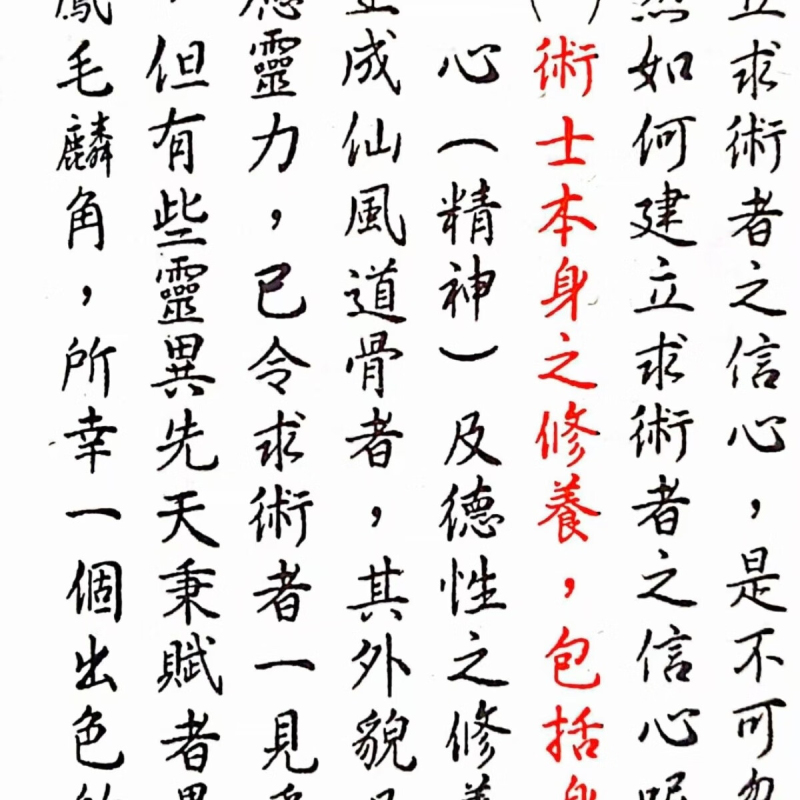 立求術者之信心，是不可忽
然如何建立求術者之信心呢
術士本身之修養，包括身
心（精神）及德性之修養
並成仙風道骨者，其外貌
應靈力，已令求術者一見
，但有些靈異先天秉賦者
鳳毛麟角，所幸一個出色的